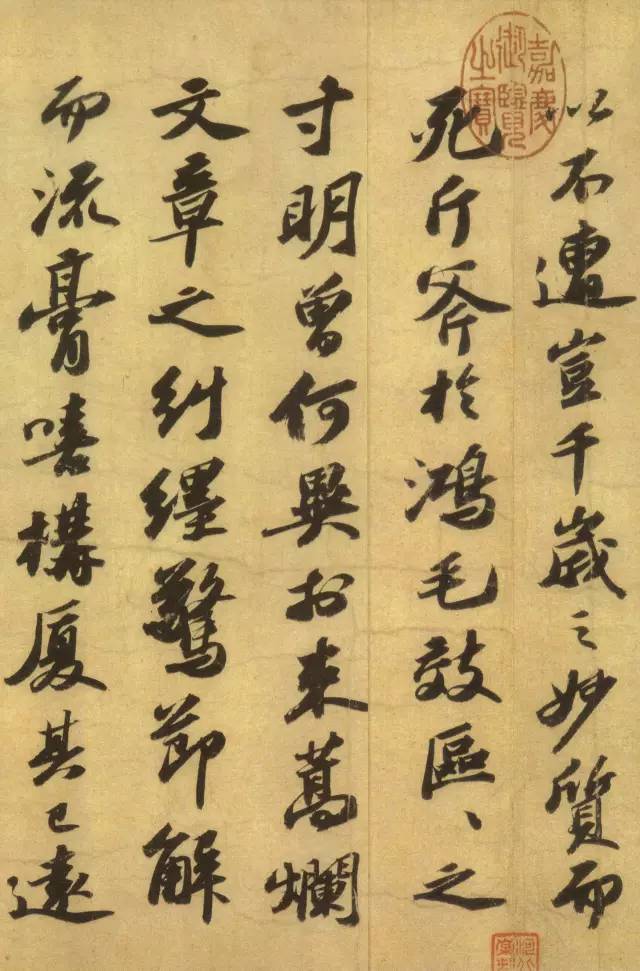 嘉慶
御覽
之寶
以不遭豈千歲之妙質而
死斤斧於鴻毛效區〻之
寸明曾何異於束蒿爛
文章之糾纏驚節解
而流膏嘻構厦其已遠